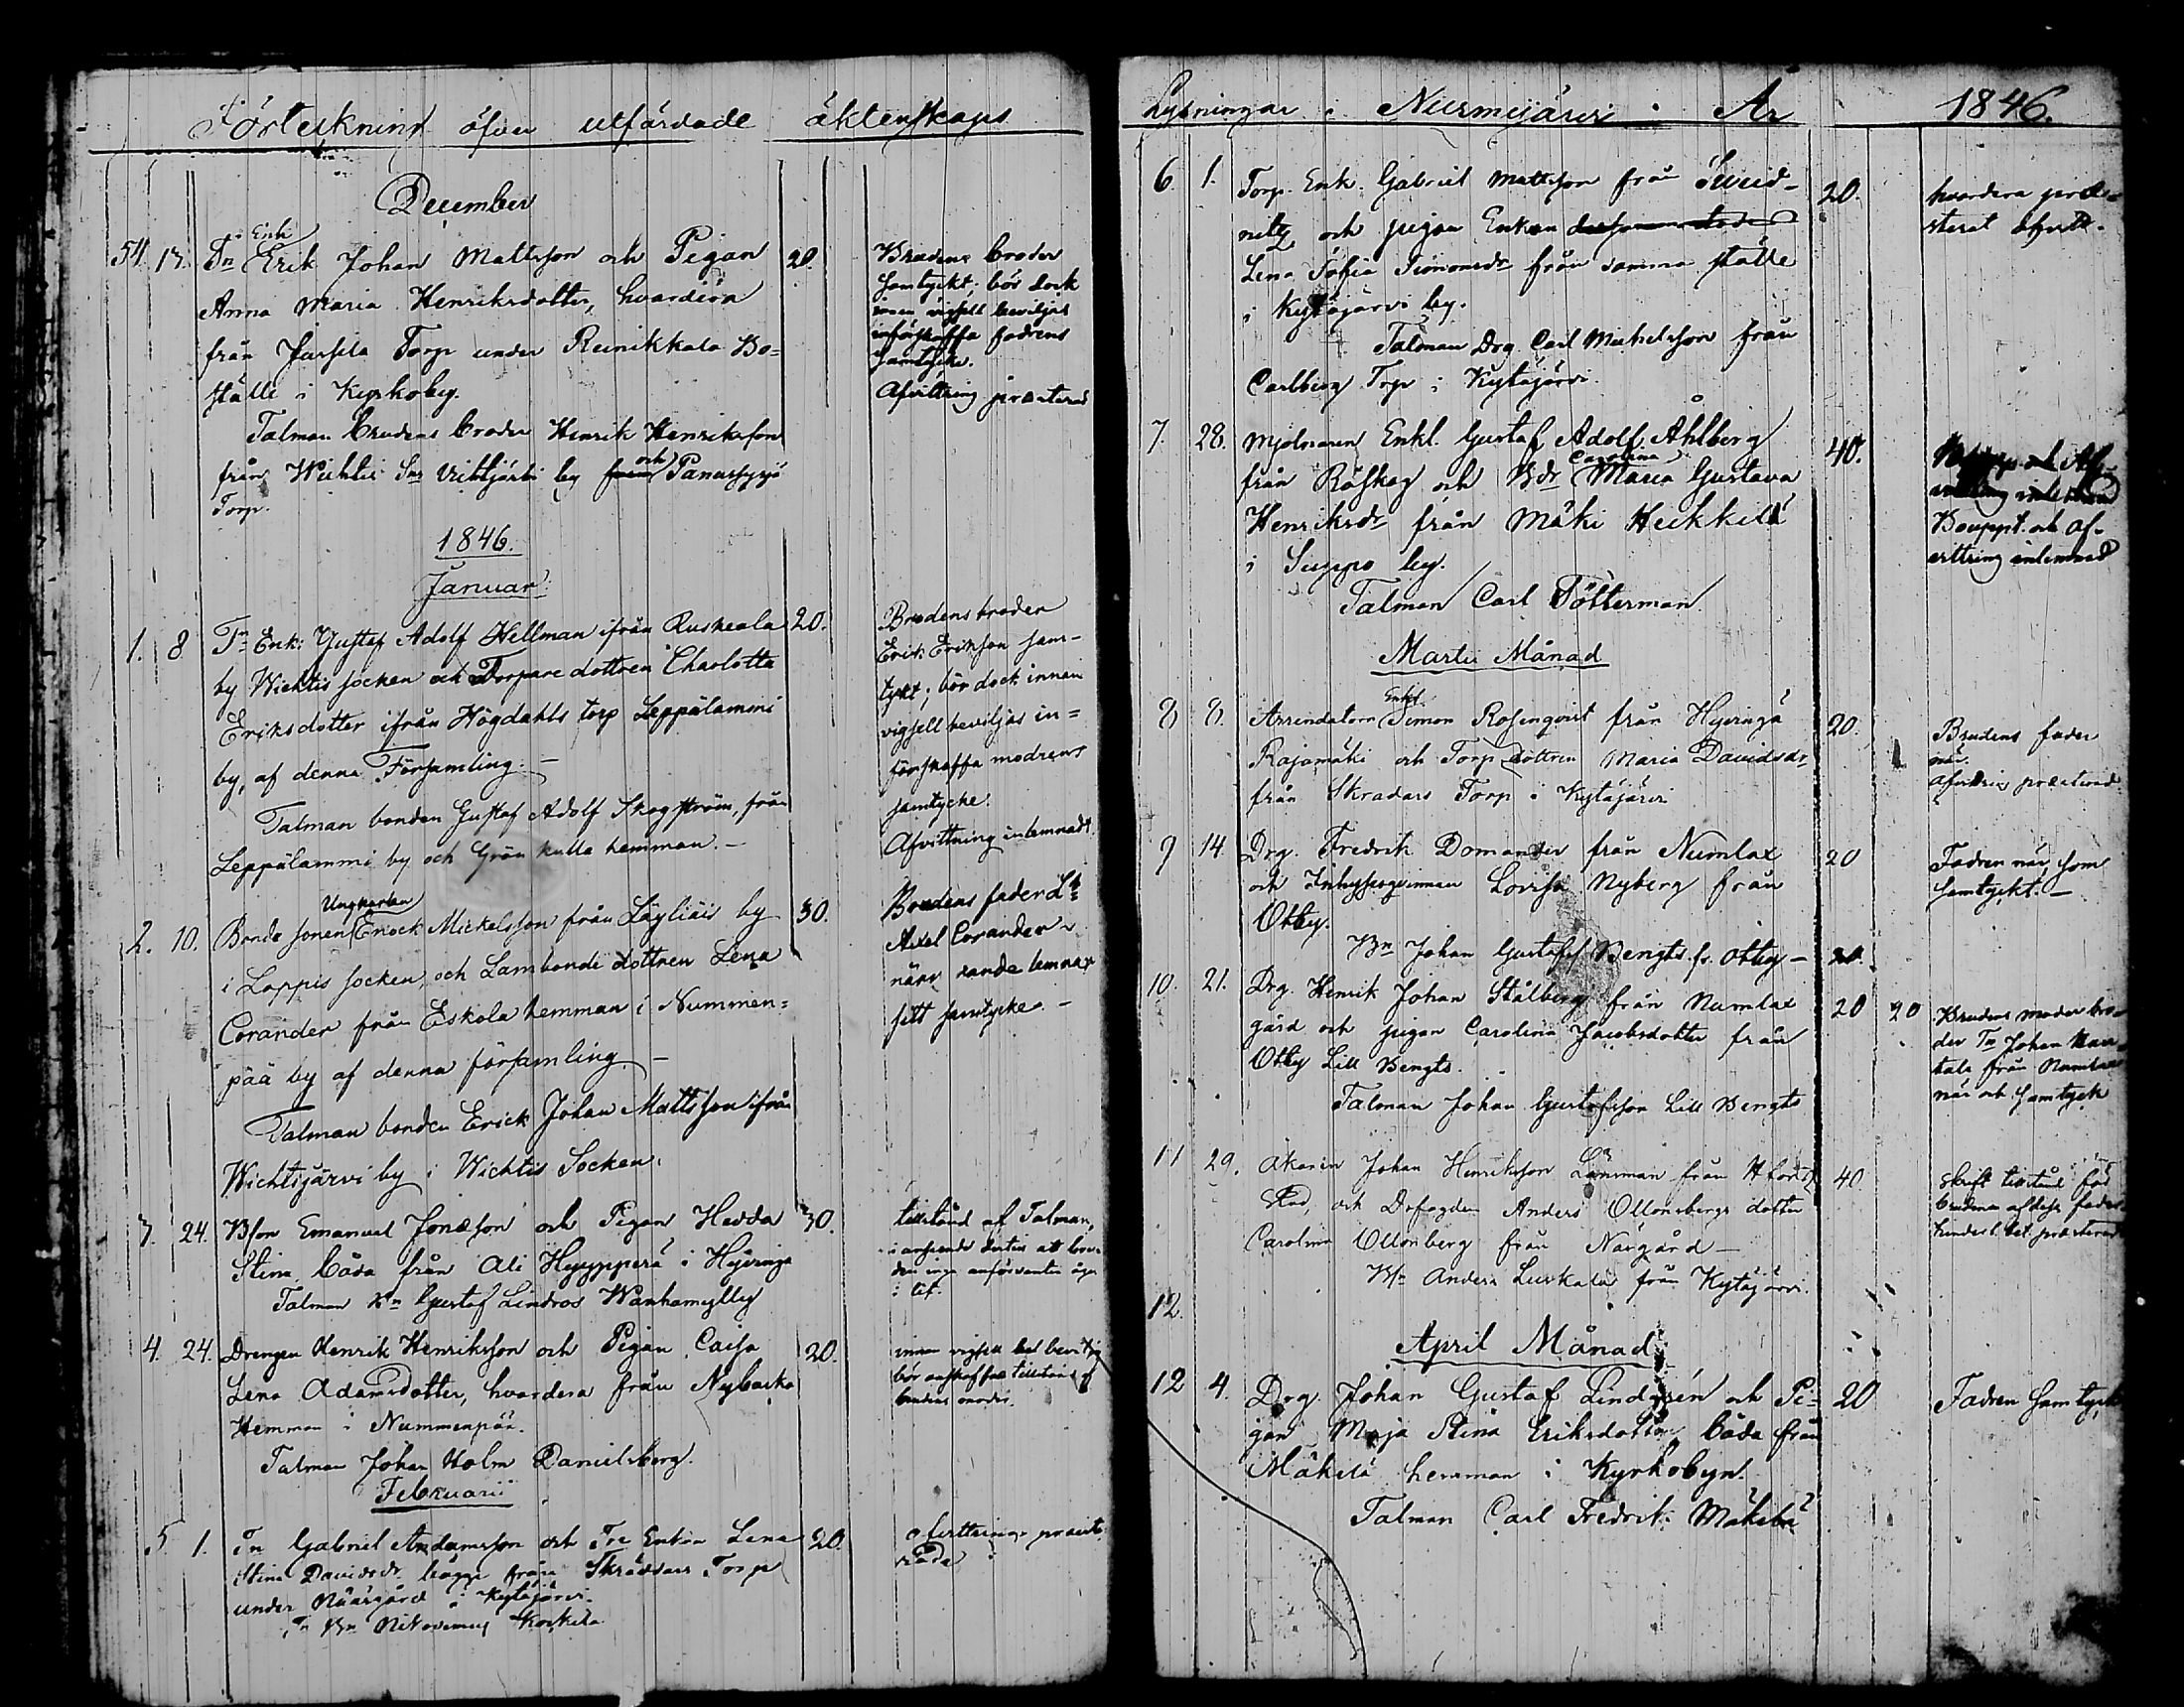 Förteckning öfver utfärdade äktenskaps
December
Enkl
54. 13. Tn Erik Johan Mattsson och Pigan 20.
Anna Maria Henriksdotter, hvardera
från Jussila Torp under Reinikkala Bo=
ställe i Kyrkoby.
Talman brudens broder Henrik Henriksson
från Wichtis Sn Vichtjärvi by och
Torp.
Brudens broder
samtyckt; bör dock
innan vigsell beviljas
införskaffa fadrens
samtycke.
Afvittring præsterad
1846.
Januar:
1. 8 Tn Enk: Gustaf Adolf Hellman ifrån Ruskeala 20.
by Wichtis socken och Torpare dottren Charlotta
Eriksdotter ifrån Högdahls torp Leppälammi
by, af denna Församling. –
Talman bonden Gustaf Adolf Skogström, från
Leppälammi by och Grönkulla hemman. –
Brudens broder
Erik Erikson sam-
tykt; bör dock innan
vigsell beviljas in=
förskaffa modrens
samtycke.
Afvittning inlemnadt
Ungkarlen
2. 10. Bonde sonen Enock Mickelsson från Läyliäis by 30.
i Loppis socken, och Lambonde dottren Lena
Corander från Eskola hemman i Nummen=
pää by af denna församling –
Talman bonden Erick Johan Mattsson ifrån
Wichtijärvi by i Wichtis Socken.
Brudens fader Lb
Axel Corander
närv rande lemnar
sitt samtycke. –
3. 24. Bson Emanuel Jonæson och Pigan Hedda 30.
Stina båda från Ali Hyypperä i Hyvinge
Talman Bn Gustaf Lindros Wanhamylly
tillstånd af Talman,
i anseende dertill att bru-
den inga anförvanter äger
i lif.
4. 24. Drengen Henrik Henriksson och Pigan Caisa 20.
Lena Adamsdotter, hvardera från Nybacka
Hemman i Nummenpää.
Talman Johan Holm Danielsberg.
innan vigsell
bör anskaffas tillstånd af
brudens moder.
Februarii
5. 1. Tn Gabriel Andersson och Tre Enkan Lena 20.
Stina Davidsdr bägge från Skräddars Torp
under Näärgård i Kytäjärvi.
Tn Bn Nikodemus Korkela
Afvittringar præste-
rade
Lysningar i Nurmijärvi År 1846.
6. 1. Torp. Enk. Gabriel Mattsson från Sveid- 20.
nitz och pigan Enkan
Lena Sofia Simonsdr från samma ställe
i Kytäjärvi by.
Talman Drg Carl Michelsson från
Carlberg Torp i Kytäjärvi.
hvardera præ-
sterat afvitt.
7. 28. Mjölnaren Enkl. Gustaf Adolf Åhlberg 40.
Carolina
från Röskog och Bdr Maria Gustava
Henriksdr från Mäki Heikkilä
i Suppo by.
Talman Carl Tötterman.
Bouppt. och af-
vittring inlemnad
Martii Månad
Enkl.
8 8. Arrendatorn Simon Rosenqvist från Hyvinge 20.
Rajamäki och Torp dottren Maria Davidsdr
från Skradars Torp i Kytäjärvi
Brudens fader
när.
Afvittring præsterad
9 14. Drg. Fredrik Domander från Numlax 20
och Inhysesqvinnan Lovisa Nyberg från
Otby.
Bn Johan Gustafss Bengts fr. Otby –
Fadren när som
samtyckt. –
10. 21. Drg. Henrik Johan Stålberg från Numlax 20 20
gård och pigan Carolina Jacobsdotter från
Otby Lill Bengts.
Talman Johan Gustafsson Lill Bengts
Brudens moder bro-
der Tn Johan
från Numlax
när och samtyck
11 29. Åkaren Johan Henriksson Lönman från H:fors 40
Stad, och Drfogden Anders Ollonbergs dotter
Carolina Ollonberg från Närgård –
Bn Anders Luskala från Kytäjärvi.
skrift tillstånd för
brudens af dess fader
hinderl. bet. præsterad
12.
April Månad
12 4. Drg. Johan Gustaf Lindgrén och Pi- 20
gan Maja Stina Eriksdotter båda från
Mäkelä hemman i Kyrkobyn.
Talman Carl Fredrik Mäkelä
Fadren samtyckt